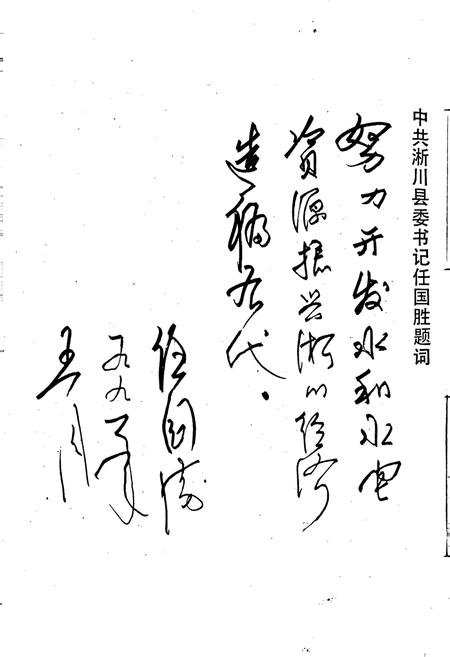 中共淅川县委书记任国胜题词
努力开发水和水电
资源振兴淅川经济
造福后代.
任国胜
一九九一年
五月